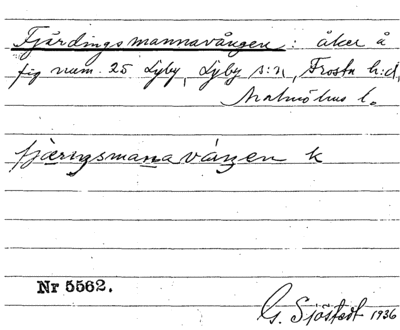 Fjärdingsmannavången: åker å
fig num. 25 Lyby, Lyby s:n, Frosta h:d,
Malmöhus l.
fjæriŋsmanavàŋen k
Nr 5562.
G. Sjöstedt 1936